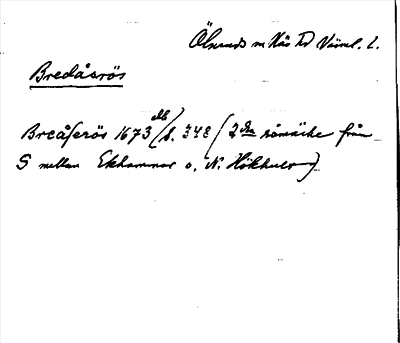 Ölserud sn Näs hd Värml. l.
Bredåsrös
Breåserös 1673 db / s. 348 (2dra råmärke från
S mellan Ekhammar o. N. Hökhult)